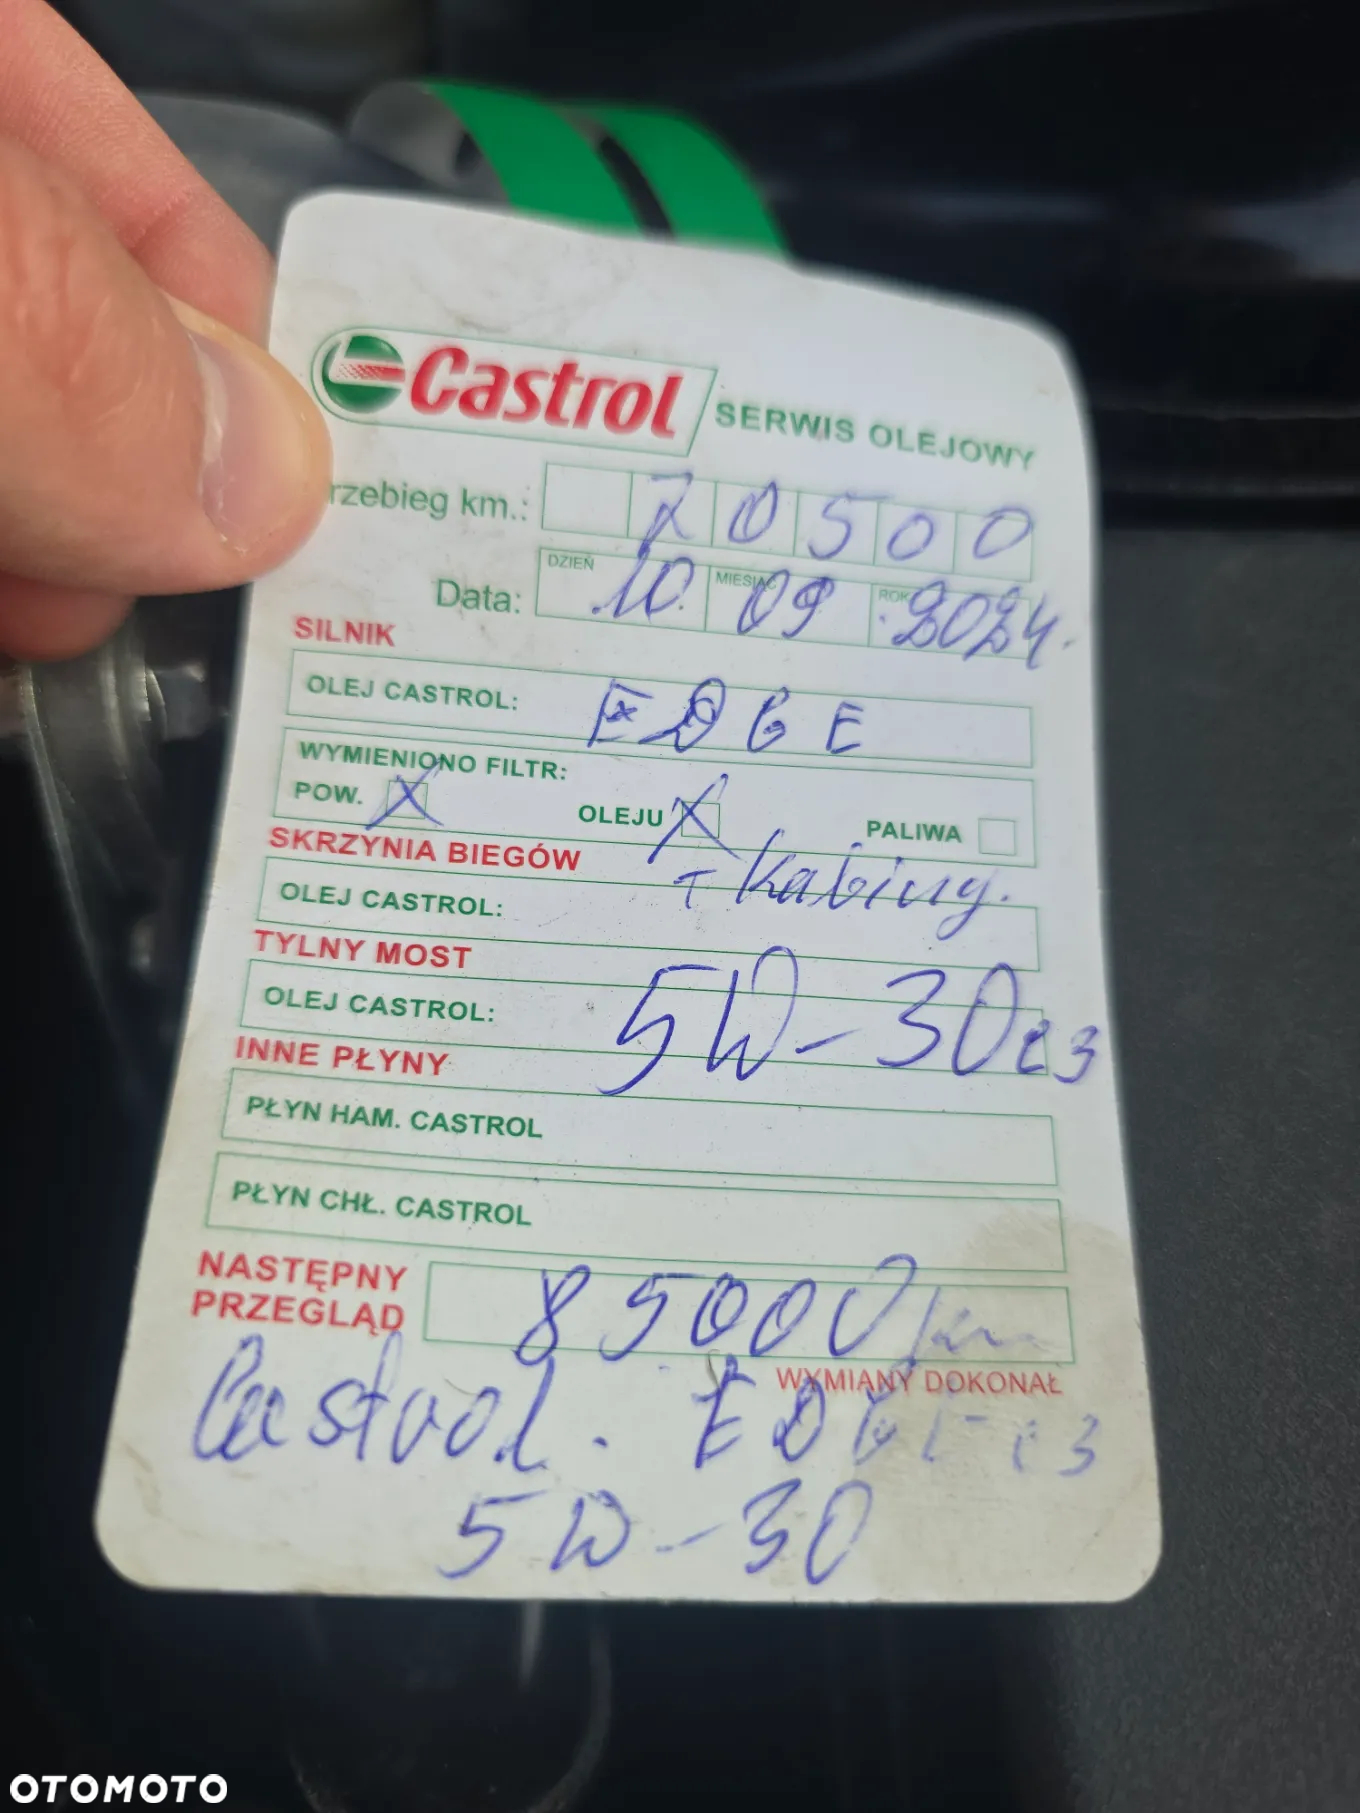 Castrol SERWIS OLEJOWY
rzebieg km.: 70500
Data: DZIEŃ 10 MIESIĄC 09 ROK 2024.
SILNIK
OLEJ CASTROL: EDGE
WYMIENIONO FILTR:
POW. X OLEJU X PALIWA
SKRZYNIA BIEGÓW
+ Kabiny.
OLEJ CASTROL:
TYLNY MOST
OLEJ CASTROL: 5W-30 C3
INNE PŁYNY
PŁYN HAM. CASTROL
PŁYN CHŁ. CASTROL
NASTĘPNY PRZEGLĄD 85000 km
WYMIANY DOKONAŁ
Castrol. EDGE C3
5W-30
OTOMOTO